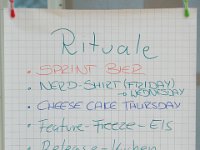 Rituale
• SPRINT BIER
• NERD-SHIRT (FRIDAY)
→ WEDNESDAY
• CHEESE CAKE THURSDAY
• Feature-Freeze-Eis
• Release-Kuchen